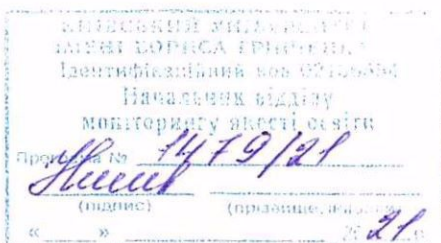 КИЇВСЬКИЙ УНІВЕРСИТЕТ
ІМЕНІ БОРИСА ГРІНЧЕНКА
Ідентифікаційний код
Начальник відділу
моніторингу якості освіти
Програма № 1479/21
(підпис) (прізвище, ініціали)
« » 2021 р.